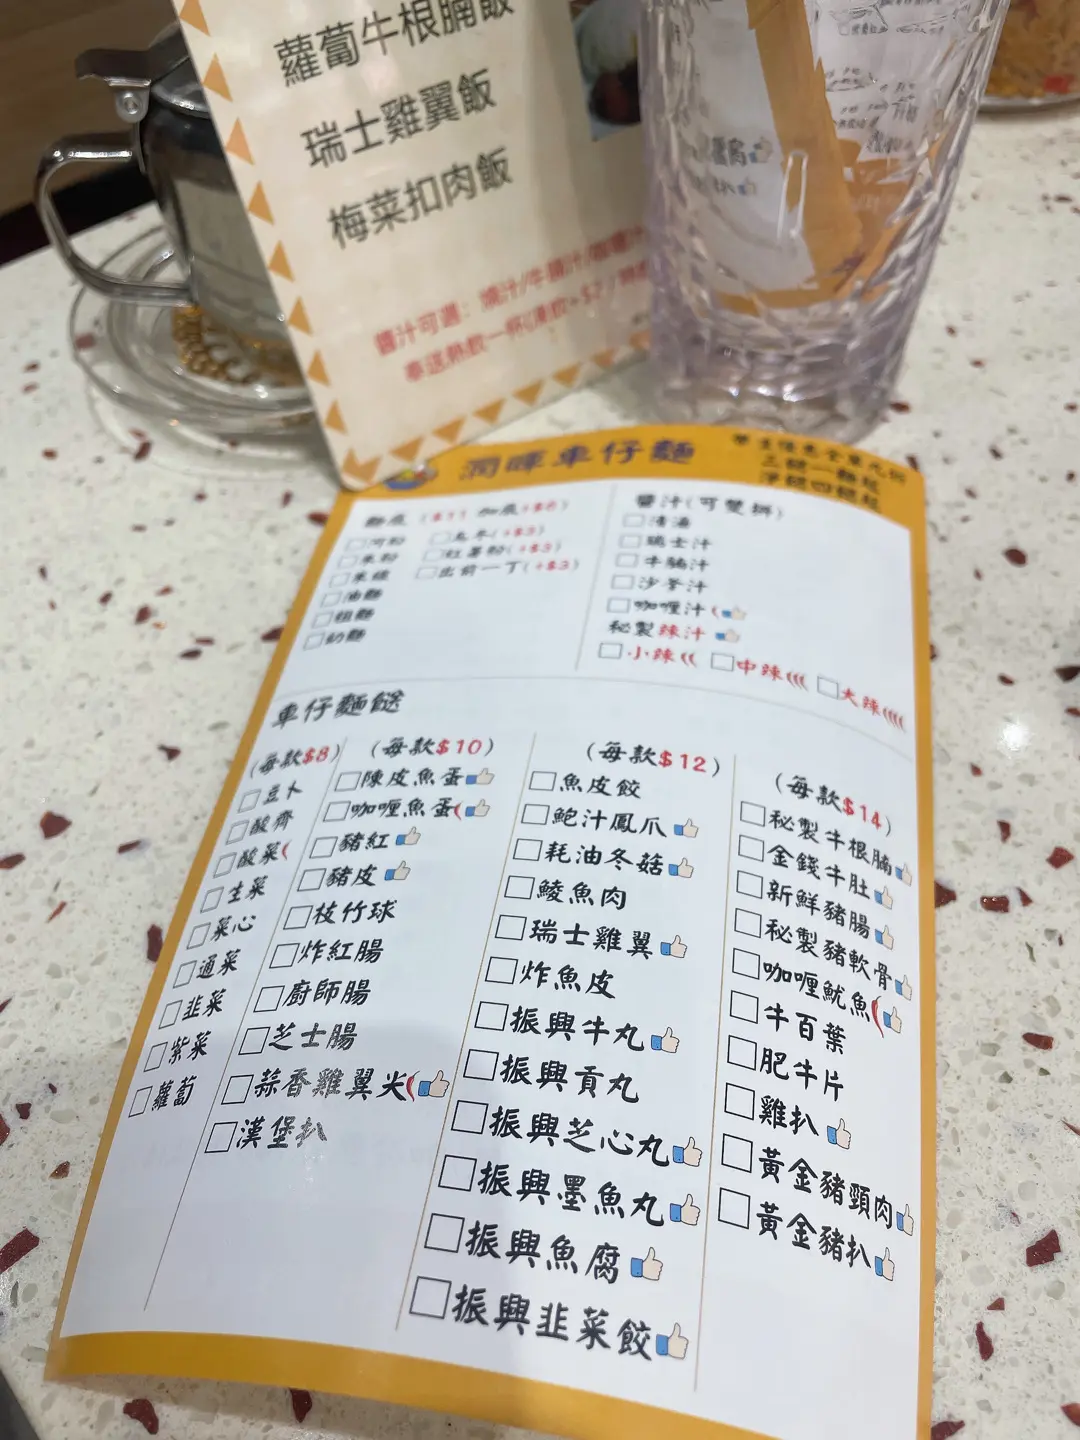 蘿蔔牛根腩飯
瑞士雞翼飯
梅菜扣肉飯
醬汁可選：燒汁/牛腩汁/咖喱汁
奉送熱飲一杯(凍飲+$2/特飲
潤暉車仔麵
學生優惠全單九折
三餸一麵起
淨餸四餸起
麵底 ($11 加底+$6)
河粉
米粉
米線
油麵
粗麵
幼麵
烏冬(+$3)
紅薯粉(+$3)
出前一丁(+$3)
醬汁(可雙拼)
清湯
瑞士汁
牛腩汁
沙爹汁
咖喱汁
秘製辣汁
小辣 中辣 大辣
車仔麵餸
(每款$8)
豆卜
酸齊
酸菜
生菜
菜心
通菜
韭菜
紫菜
蘿蔔
(每款$10)
陳皮魚蛋
咖喱魚蛋
豬紅
豬皮
枝竹球
炸紅腸
廚師腸
芝士腸
蒜香雞翼尖
漢堡扒
(每款$12)
魚皮餃
鮑汁鳳爪
耗油冬菇
鯪魚肉
瑞士雞翼
炸魚皮
振興牛丸
振興貢丸
振興芝心丸
振興墨魚丸
振興魚腐
振興韭菜餃
(每款$14)
秘製牛根腩
金錢牛肚
新鮮豬腸
秘製豬軟骨
咖喱魷魚
牛百葉
肥牛片
雞扒
黃金豬頸肉
黃金豬扒